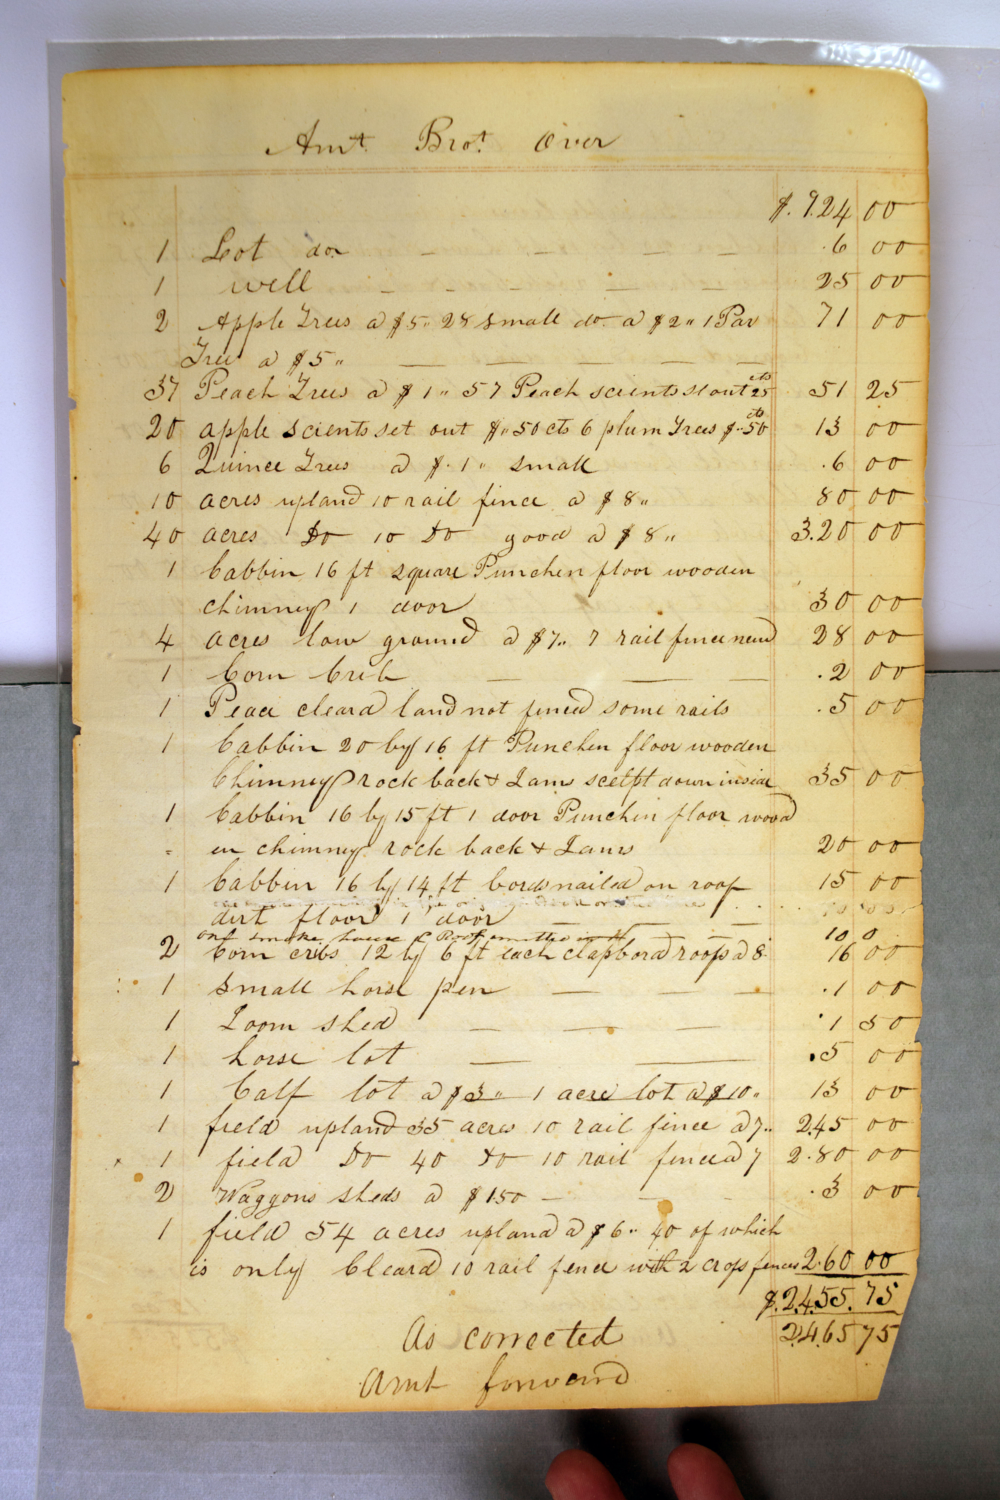 Amt. Brot. Over
$. 9.24 00
1 Lot do — — — — .6 00
1 well — — — — — 25 00
2 Apple Trees a $5" 28 small do. a $2" 1 Par 71 00
Tree a $5" — — — — —
37 Peach Trees a $1" 57 Peach scients st out 25 cts 51 25
20 apple scients set out $" 50 cts 6 plum Trees $.50 cts 13 00
6 Quince Trees a $.1" small .6 00
10 acres upland 10 rail fince a $8" 80 00
40 acres Do 10 Do good a $8" 3.20 00
1 Cabbin 16 ft square Punchen floor wooden
chimney 1 door 30 00
4 acres low ground a $7.. 7 rail fince new 28 00
1 Corn Crib — — — .2 00
1 Peace cleard land not fenced some rails .5 00
1 Cabbin 20 by 16 ft Punchen floor wooden
Chimney rock back & Jams down inside 35 00
1 Cabbin 16 by 15 ft 1 door Punchin floor wood
= en chimney. rock back & Jams 20 00
1 Cabbin 16 by 14 ft bords nailed on roof 15 00
dirt floor 1 door — — —
one smoke house & Roof omitted 10 0
2 Corn cribs 12 by 6 ft each clapbord roofs a 8. 16 00
1 small horse pen — — — .1 00
1 Loom shed — — — .1 50
1 horse lot — — .5 00
1 Calf lot a $3" 1 acre lot a $10" 13 00
1 field upland 35 acres 10 rail fince a 7.. 245 00
1 field Do 40 Do 10 rail fince a 7 2.80 00
2 Waggons sheds a $1.50 — — - .3 00
1 field 54 acres upland a $6" 40 of which
is only Cleard 10 rail fence with 2 crops fences 2.60 00
$.2.455.75
As corrected 2.465 75
Amt forward